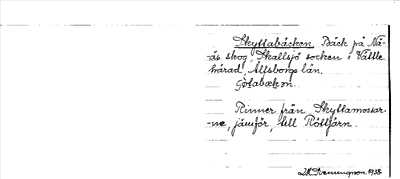 Skyttabäcken Bäck på Nä-
äs skog, Skallsjö socken i Vättle
härad, Älfsborgs län.
Götabäcken.
Rinner från Skyttamossar-
-na, jämför, till Röttjärn.
1938